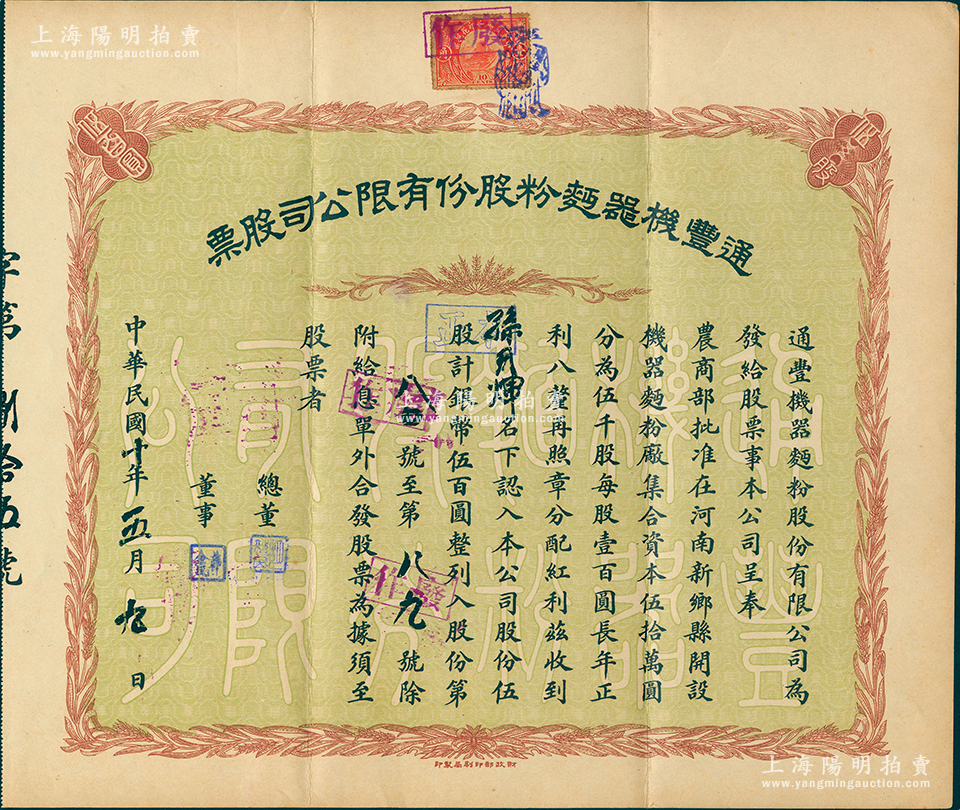 上海陽明拍賣
www.yangmingauction.com
廢作
10
股
通豐機器麵粉股份有限公司股票
正本
通豐機器麵粉股份有限公司為
發給股票事本公司呈奉
農商部批准在河南新鄉縣開設
機器麵粉廠集合資本伍拾萬圓
分為伍千股每股壹百圓長年正
利八釐再照章分配紅利茲收到
名下認入本公司股份伍
股計銀幣伍百圓整列入股份第
八五號至第八九號除
附給息單外合發股票為據須至
股票者
總董
董事
中華民國十年五月九日
廢作
廢作
字第
捌拾伍號
財政部印刷局製印
上海陽明拍賣
www.yangmingauction.com
上海陽明拍賣
www.yangmingauction.com